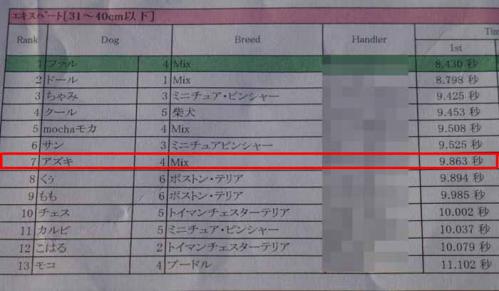 エキスパート[31～40cm以下]
Rank Dog Breed Handler Tim
1st
1 ファル 4 Mix 8.430 秒
2 ドール 1 Mix 8.798 秒
3 ちゃみ 3 ミニチュア・ピンシャー 9.425 秒
4 クール 5 柴犬 9.453 秒
5 mochaモカ 4 Mix 9.508 秒
6 サン 3 ミニチュアピンシャー 9.525 秒
7 アズキ 4 Mix 9.863 秒
8 くぅ 6 ボストン・テリア 9.894 秒
9 もも 6 ボストン・テリア 9.985 秒
10 チェス 5 トイマンチェスターテリア 10.002 秒
11 カルビ 5 ミニチュア・ピンシャー 10.037 秒
12 こはる 2 トイマンチェスターテリア 10.079 秒
13 モコ 4 プードル 11.102 秒